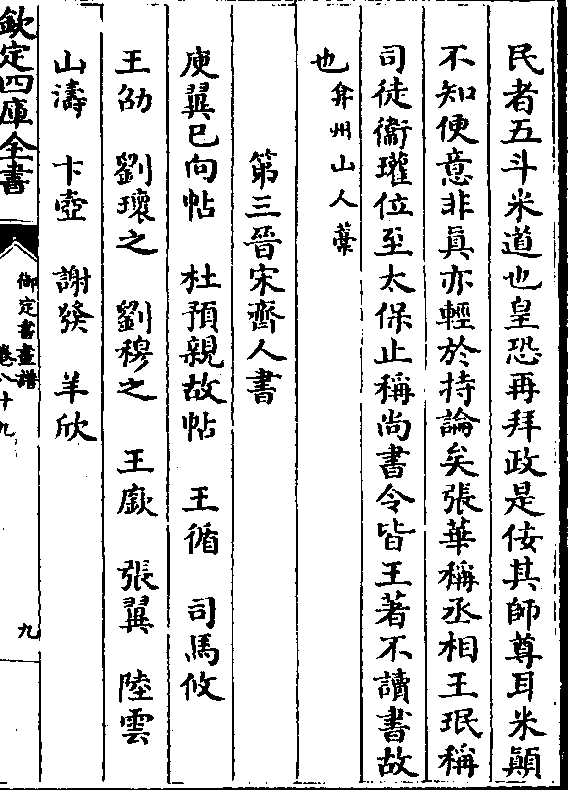 民者五斗米道也皇恐再拜政是佞其師尊耳米顛
不知便意非真亦輕於持論矣張華稱丞相王珉稱
司徒衞瓘位至太保止稱尚書令皆王著不讀書故
也弇州山人藳
第三晉宋齊人書
庾翼已向帖 杜預親故帖 王循 司馬攸
王劭 劉瓌之 劉穆之 王廞 張翼 陸雲
山濤 卞壼 謝發 羊欣
欽定四庫全書
御定書畫譜
卷八十九
九